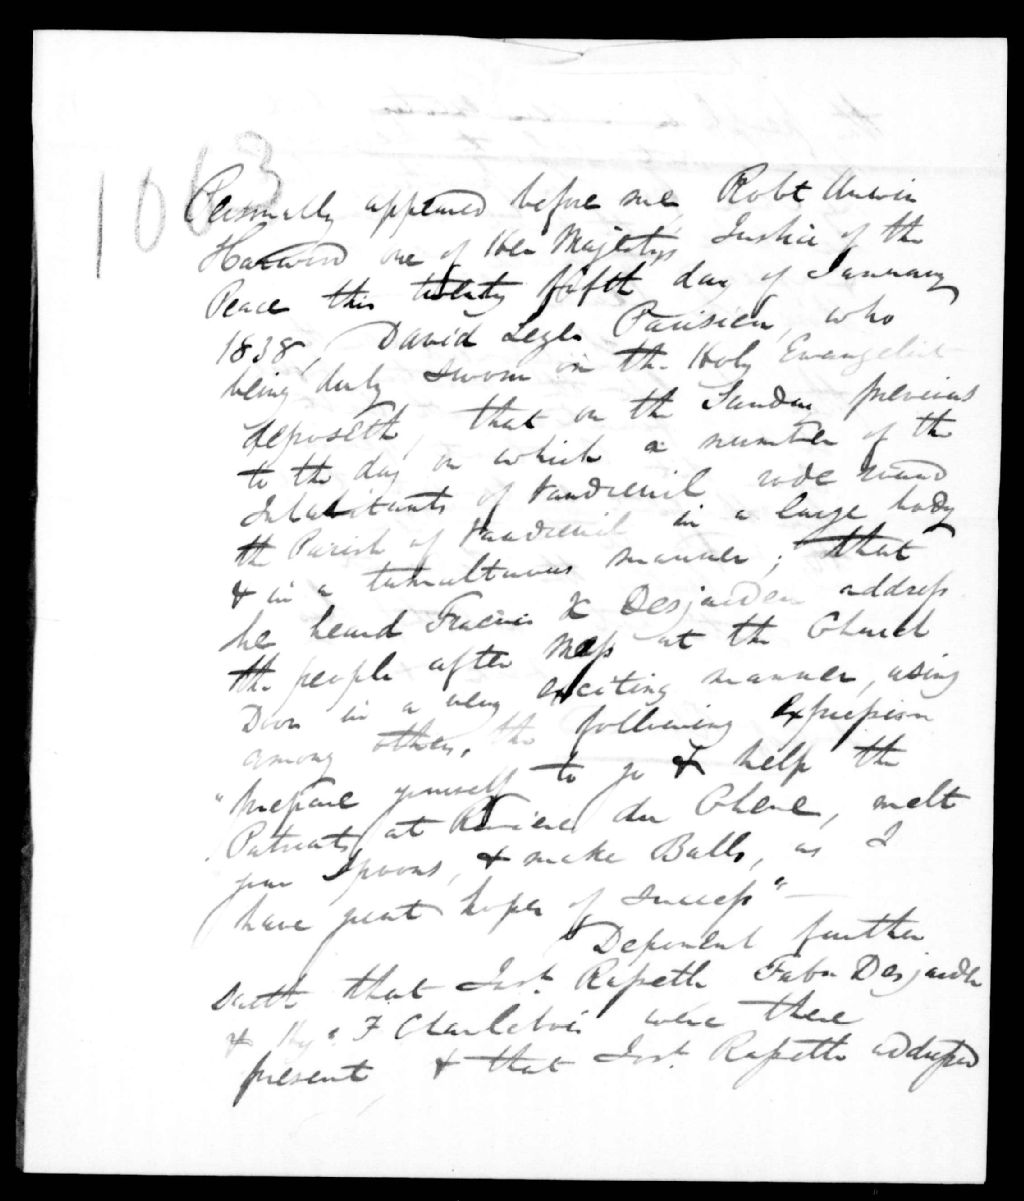 1063
Personally appeared before me, Robt Unwin
Harwood one of Her Majesty's Justice of the
Peace this twenty fifth day of January
1838, David Leger Parisien, who
being duly sworn on the Holy Evangelist
deposeth, that on the Sunday previous
to the day on which a number of the
Inhabitants of Vaudreuil rode round
the Parish of Vaudreuil in a large body
& in a tumultuous manner; that
he heard Francis X Desjarden address
the people after Mass at the Church
Door in a very exciting manner, using
among other, the following expression
"prepare yourself to go & help the
Patriots at Riviere du Chene, melt
your spoons, & make Balls, as I
have great hopes of success" —
Deponent further
Saith that Jos. Rapeth Desjarden
& Hy. F Charlebois were there
present & that Jos. Rapeth addressed